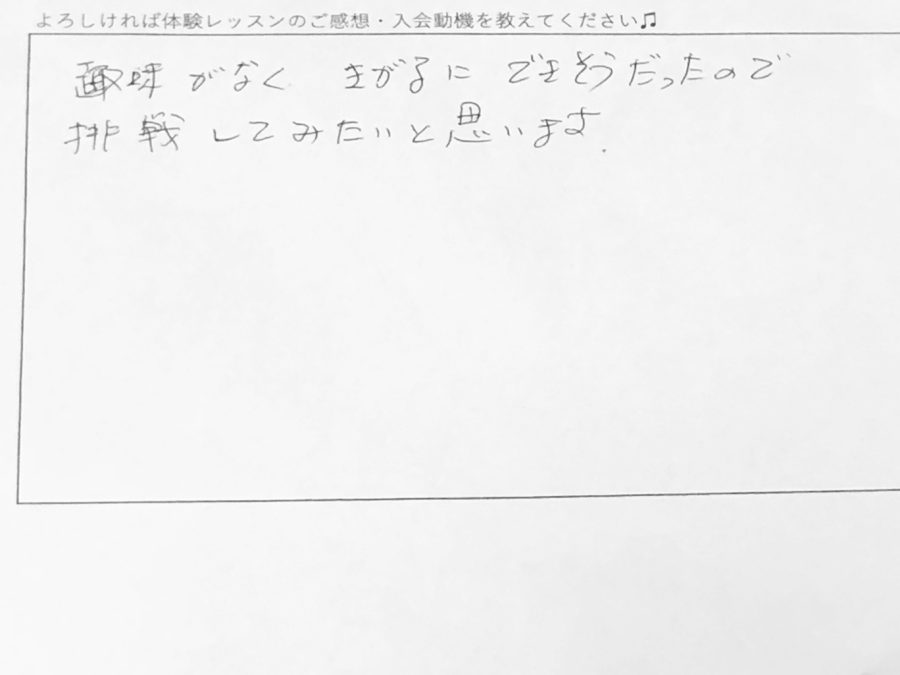 よろしければ体験レッスンのご感想・入会動機を教えてください♫
趣味がなく きがるに できそうだったので
挑戦してみたいと思います.